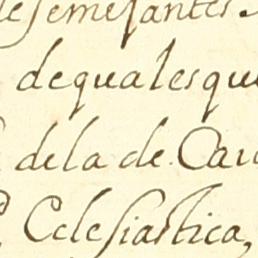 semejantes
dequalesqu
dela de Car
Eclesiastica,